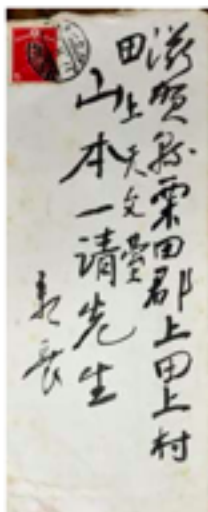 滋賀縣栗田郡上田上村
田上天文臺
山本一清先生